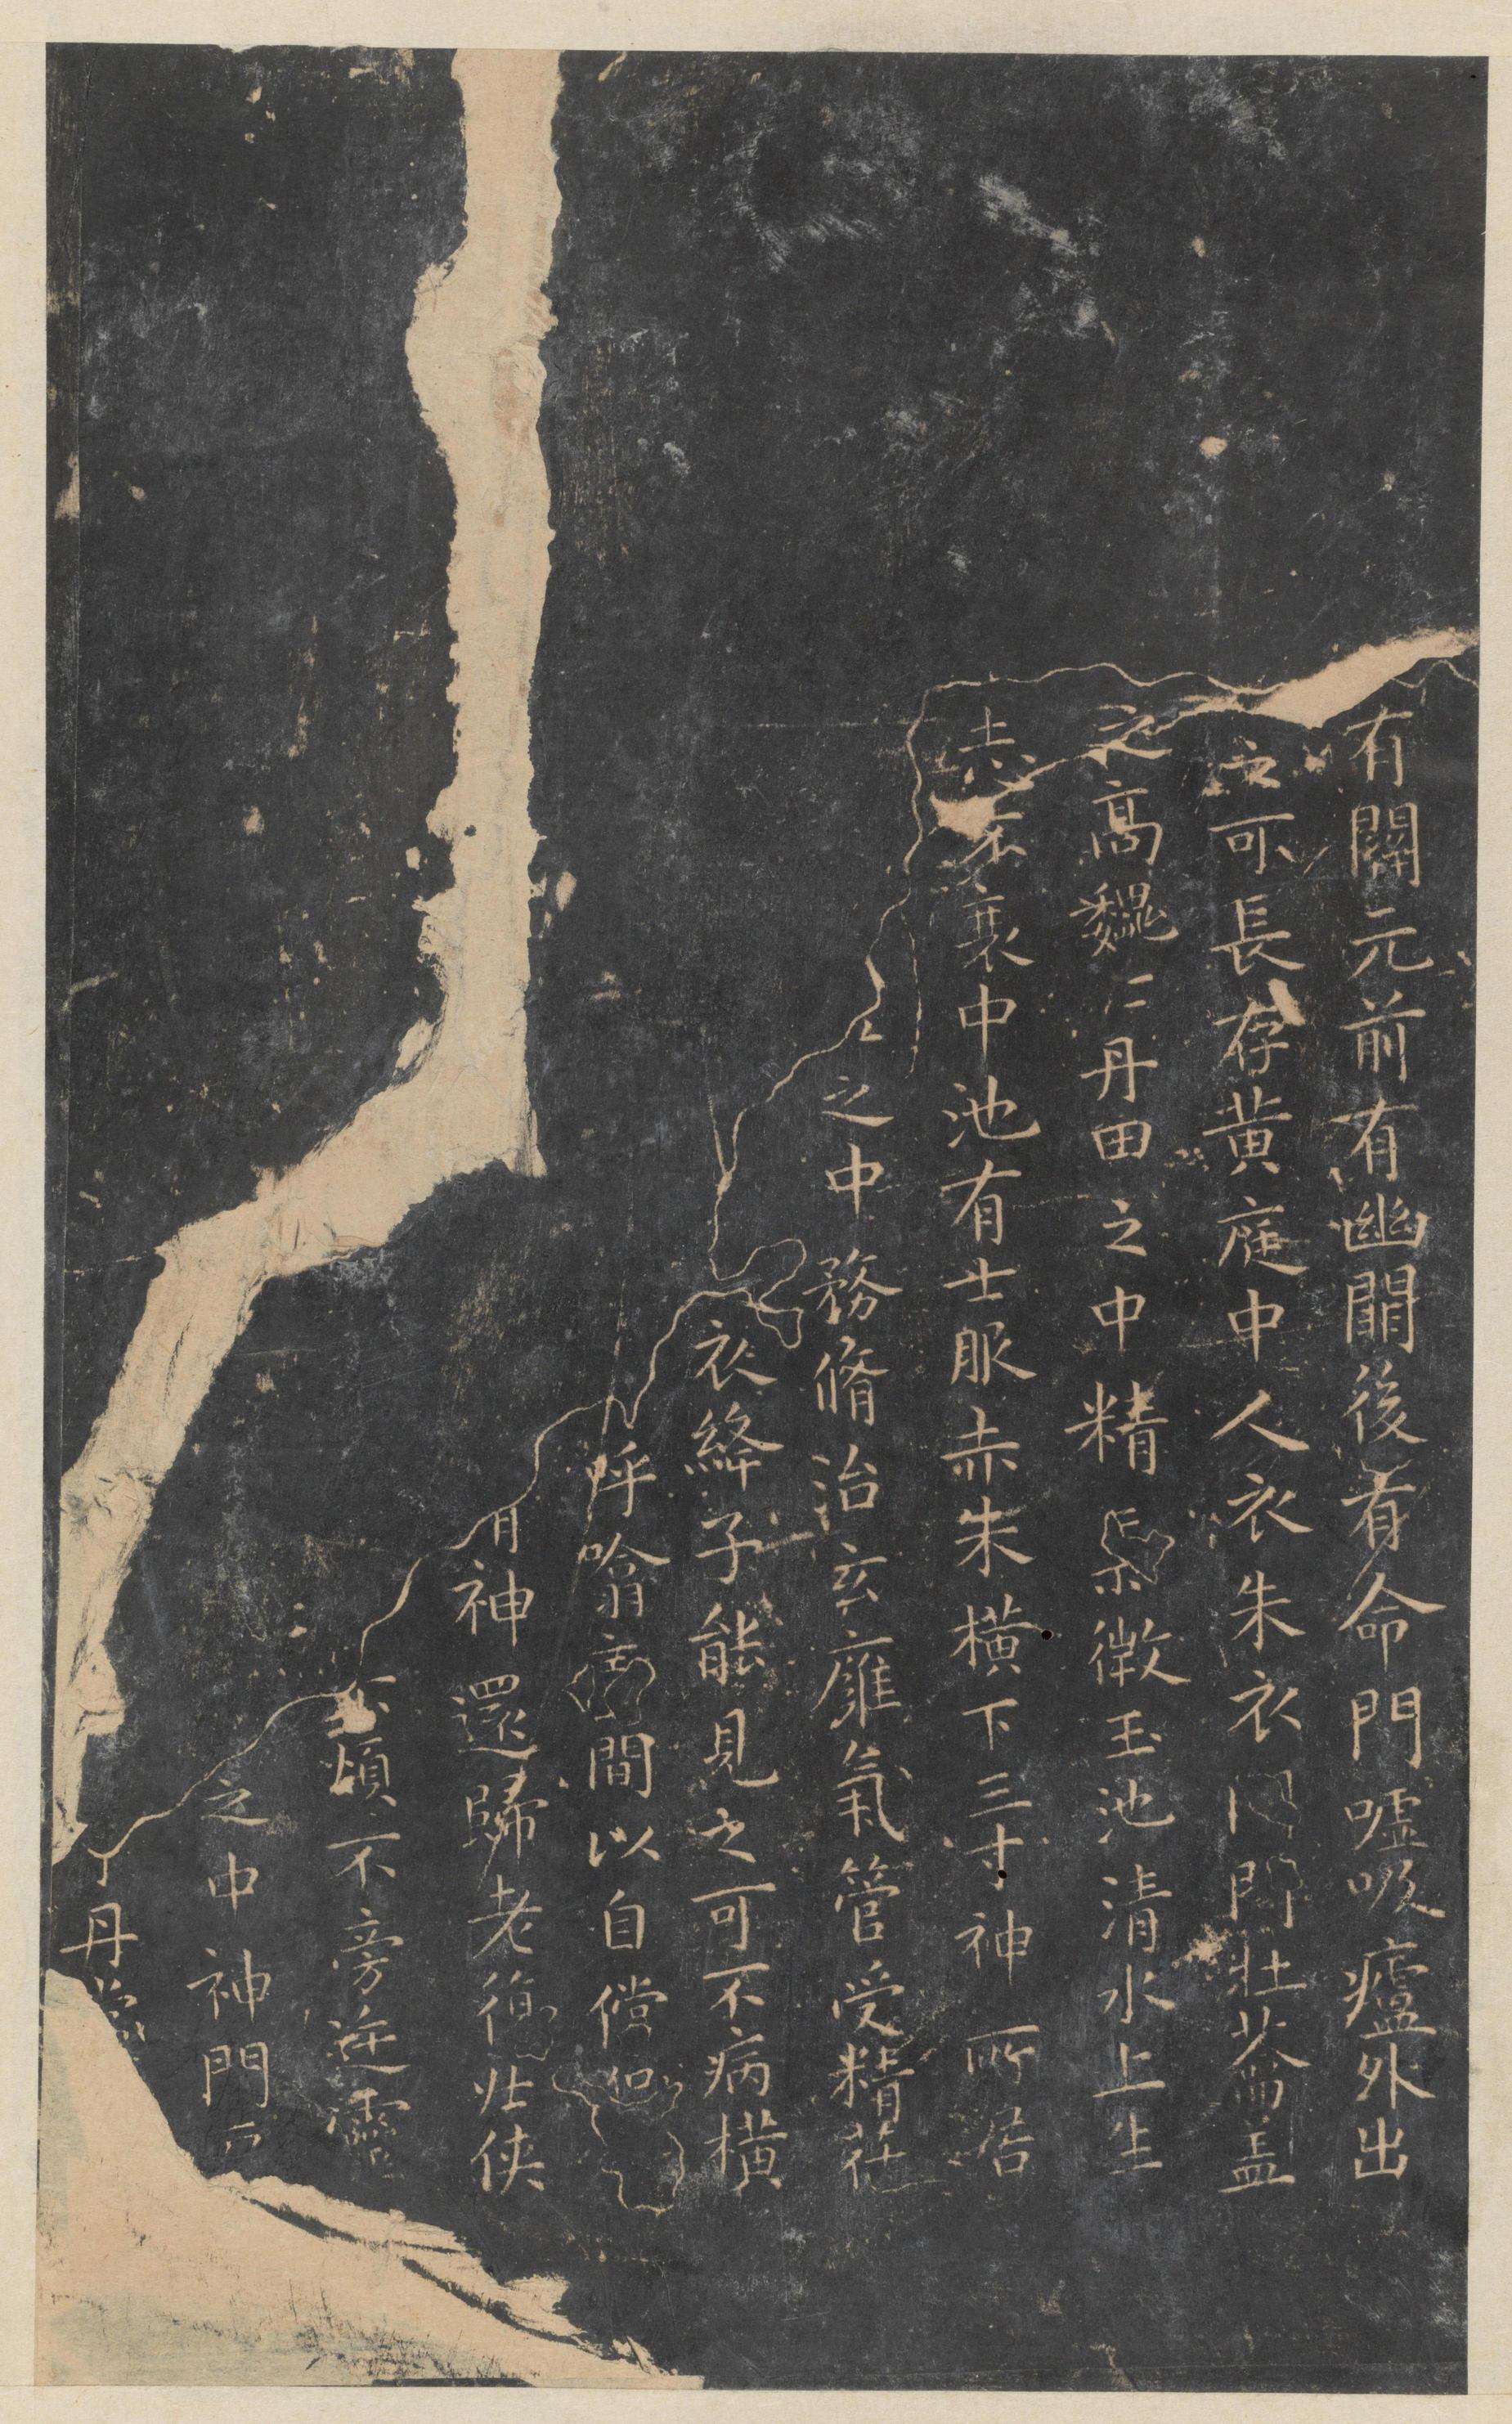 有關元前有幽闕後有命門噓吸廬外出
之可長存黃庭中人衣朱衣門壯蘥蓋
之高巍二丹田之中精氣微玉池清水上生
赤朱衷中池有士服赤朱橫下三寸神所居
之中務脩治玄廱氣管受精
衣絳子能見之可不病橫
呼噏間以自償
神還歸老復壯俠
煩不旁迕靈
之中神門
丹